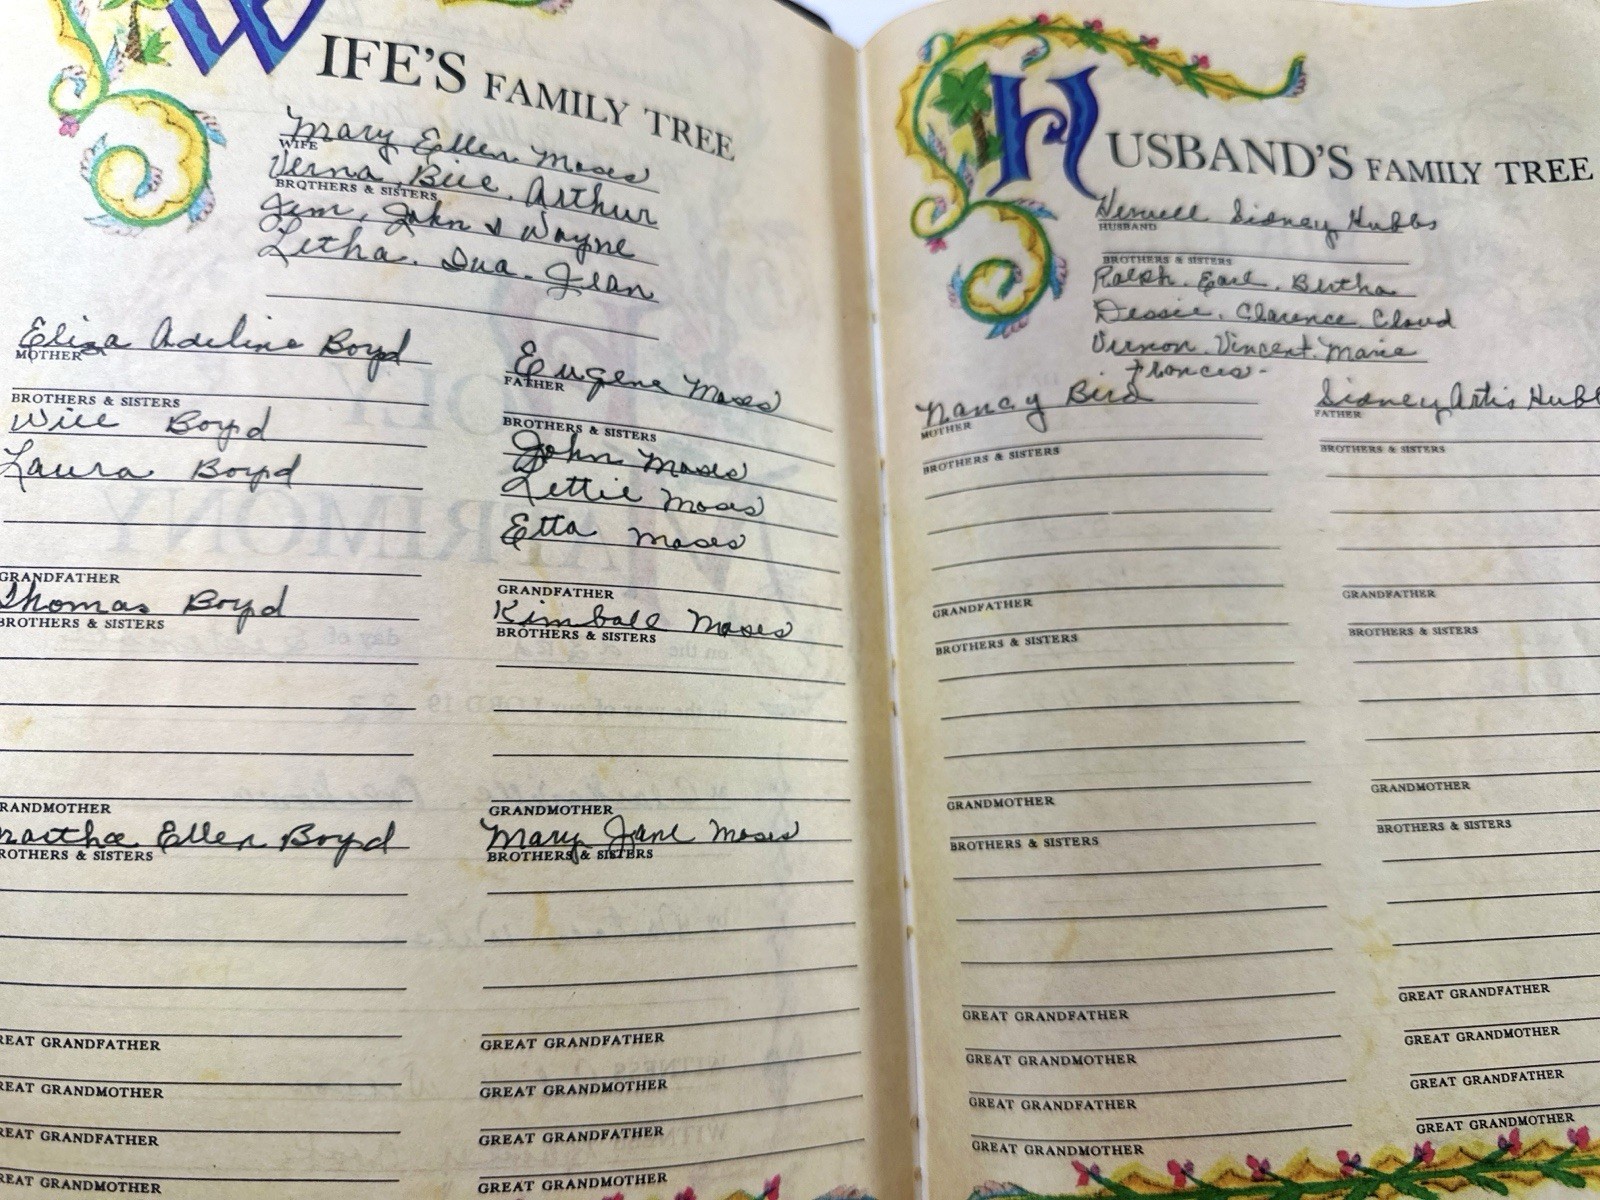 WIFE'S FAMILY TREE
Mary Ellen Moses
WIFE
Verna, Bill, Arthur
BROTHERS & SISTERS
Jim, John & Wayne
Letha. Iva. Jean
Eliza Adeline Boyd
MOTHER
BROTHERS & SISTERS
Will Boyd
Laura Boyd
GRANDFATHER
Thomas Boyd
BROTHERS & SISTERS
GRANDMOTHER
Martha Ellen Boyd
BROTHERS & SISTERS
GREAT GRANDFATHER
GREAT GRANDMOTHER
GREAT GRANDFATHER
GREAT GRANDMOTHER
Eugene Moses
FATHER
BROTHERS & SISTERS
John Moses
Lettie Moses
Etta Moses
GRANDFATHER
Kimball Moses
BROTHERS & SISTERS
GRANDMOTHER
Mary Jane Moses
BROTHERS & SISTERS
GREAT GRANDFATHER
GREAT GRANDMOTHER
GREAT GRANDFATHER
GREAT GRANDMOTHER
HUSBAND'S FAMILY TREE
Sidney Hubbs
HUSBAND
BROTHERS & SISTERS
Ralph. Earl. Bertha
Dessie. Clarence. Cloud
Vernon. Vincent. Marie
Francis-
Nancy Bird
MOTHER
BROTHERS & SISTERS
GRANDFATHER
BROTHERS & SISTERS
GRANDMOTHER
BROTHERS & SISTERS
GREAT GRANDFATHER
GREAT GRANDMOTHER
GREAT GRANDFATHER
GREAT GRANDMOTHER
Sidney Artis Hubb
FATHER
BROTHERS & SISTERS
GRANDFATHER
BROTHERS & SISTERS
GRANDMOTHER
BROTHERS & SISTERS
GREAT GRANDFATHER
GREAT GRANDMOTHER
GREAT GRANDFATHER
GREAT GRANDMOTHER